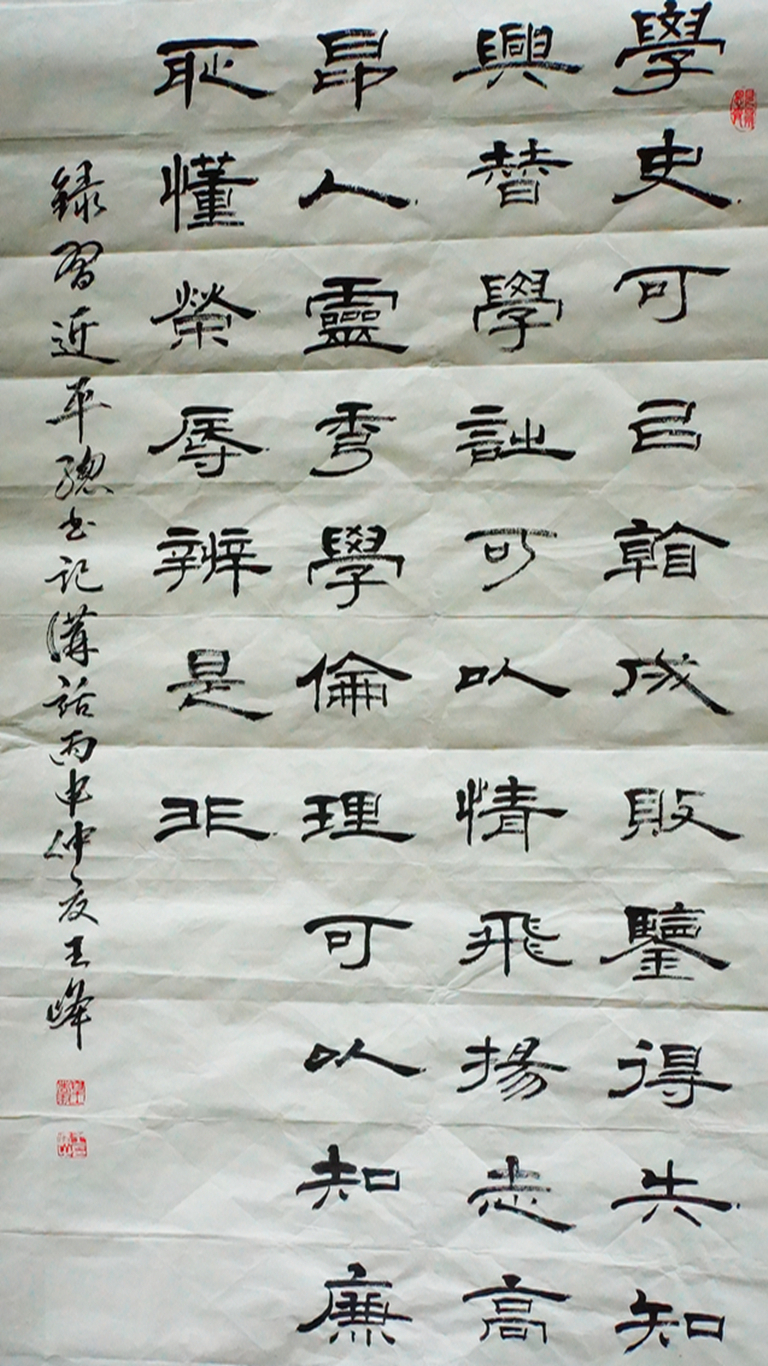 學史可㠯看成敗鑒得失知
興替學詩可以情飛揚志高
昂人靈秀學倫理可以知廉
恥懂榮辱辨是非
錄習近平總书記講話丙申仲夏王峰